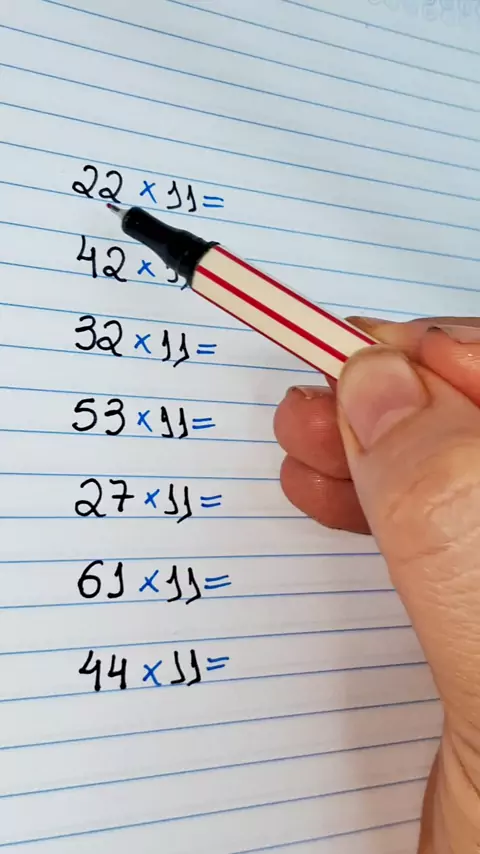 22 × 11 =
42 ×
32 × 11 =
53 × 11 =
27 × 11 =
61 × 11 =
44 × 11 =